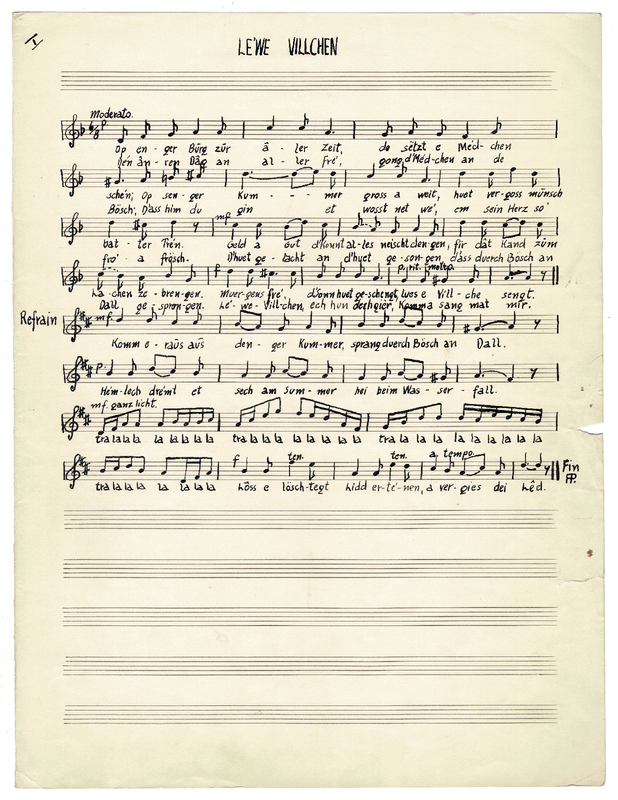 LE'WE VILLCHEN
Moderato.
Op en - ger Bürg zür â - ler Zeit, do sëtzt e Méd - chen
Den ân - ren Dâg an al - ler fre', gong d'Méd - chen an de
schéin; Op sen - ger Kum - - mer gross a weit, huet ver - goss münsch
Bösch; Dass him du gin et wosst net we', em sein Herz so'
mf
bat - ter Tre'n. Geld a Gut d'Konnt al - les neischt den - gen, fir dât Kand züm
fro' a frösch. D'huet ge - lacht an d'huet ge - son - gen, dâss duerch Bösch an
f p. rit. molto.
La - chen ze - bren - gen. Muer - gens fre', d'Sonn huet ge - schengt, lues e Vill - che sengt.
Dall ge - spron - gen. Le' - we Vill - chen, ech hun dech gier, Komm a sang mat mir.
Refrain mf.
Komm e - raüs aüs den - ger Kum - mer, spräng duerch Bösch an Dall.
p.
Hém - lech dréml et sech am Sum - mer hei beim Was - ser - fall.
mf. ganz licht.
tra la la la la la la la tra la la la la la la la la tra la la la la la la la la la
f ten. ten. a tempo
tra la la la la la la la Loss e lösch - tegt Lidd er - te' - nen, a ver - gies dei Lêd.
Fin